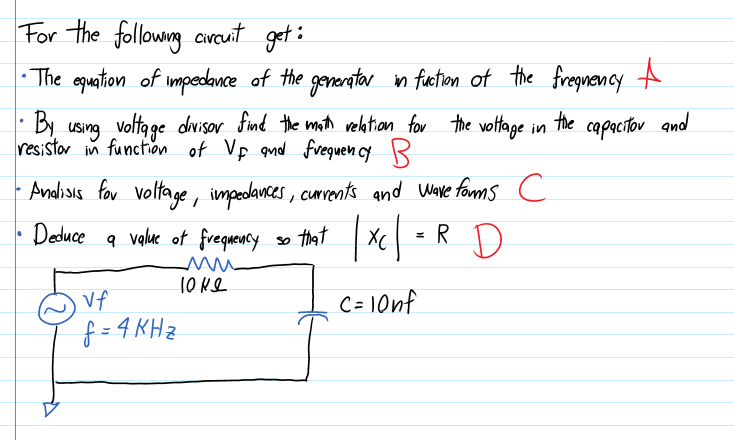 For the following circuit get:
• The equation of impedance of the generator in fuction of the frequency A
• By using voltage divisor find the math relation for the voltage in the capacitor and
resistor in function of VF and frequency B
• Analisis for voltage, impedances, currents and wave forms C
• Deduce a value of frequency so that |Xc| = R D
10 KΩ
Vf
f = 4 KHz
C = 10nf